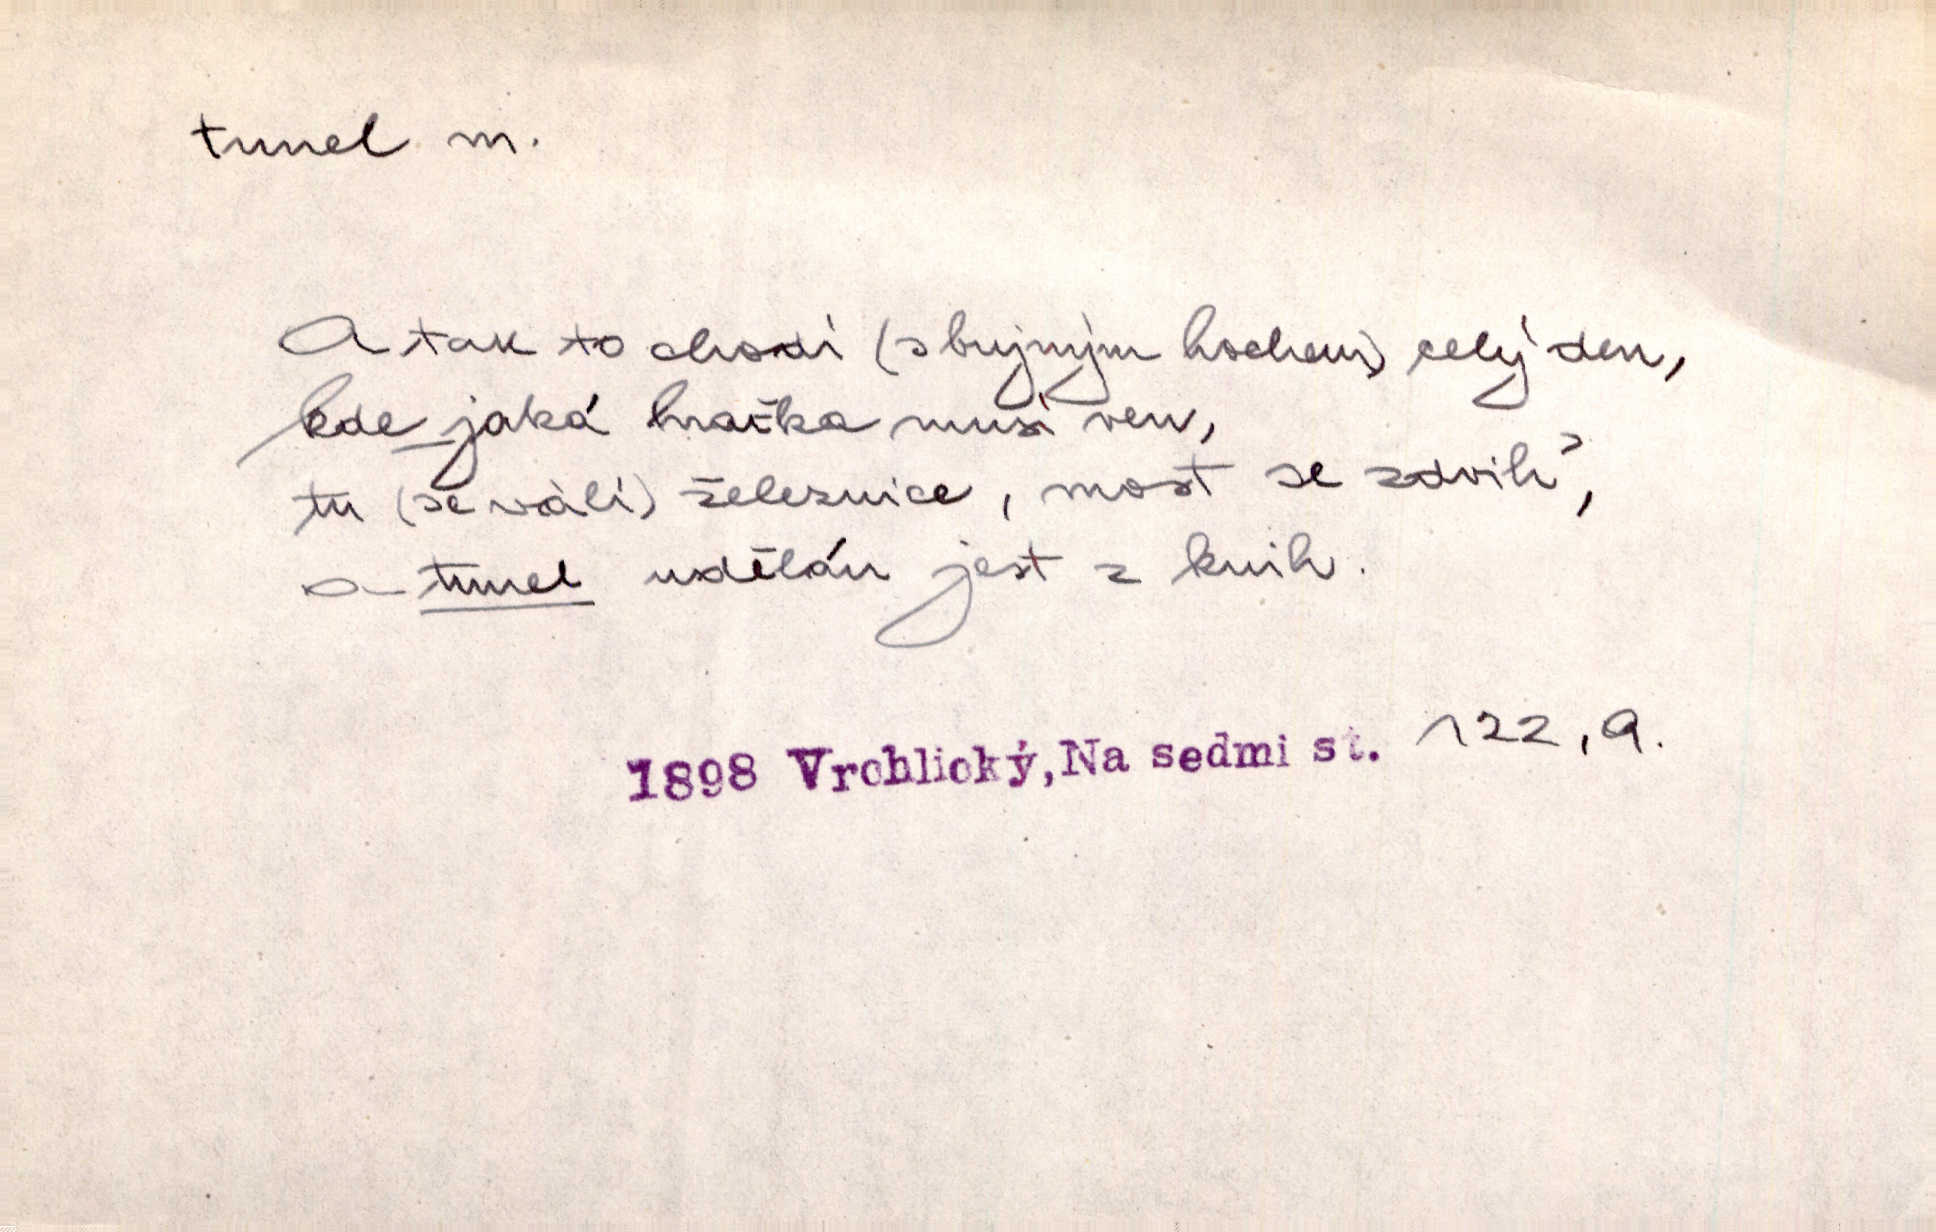 tunel m.
A tak to chodí (s bujným hochem) celý den,
kde jaká hračka musí ven,
tu (se válí) železnice, most se zdvih',
a tunel udělán jest z knih.
1898 Vrchlický, Na sedmi st. 122, 9.